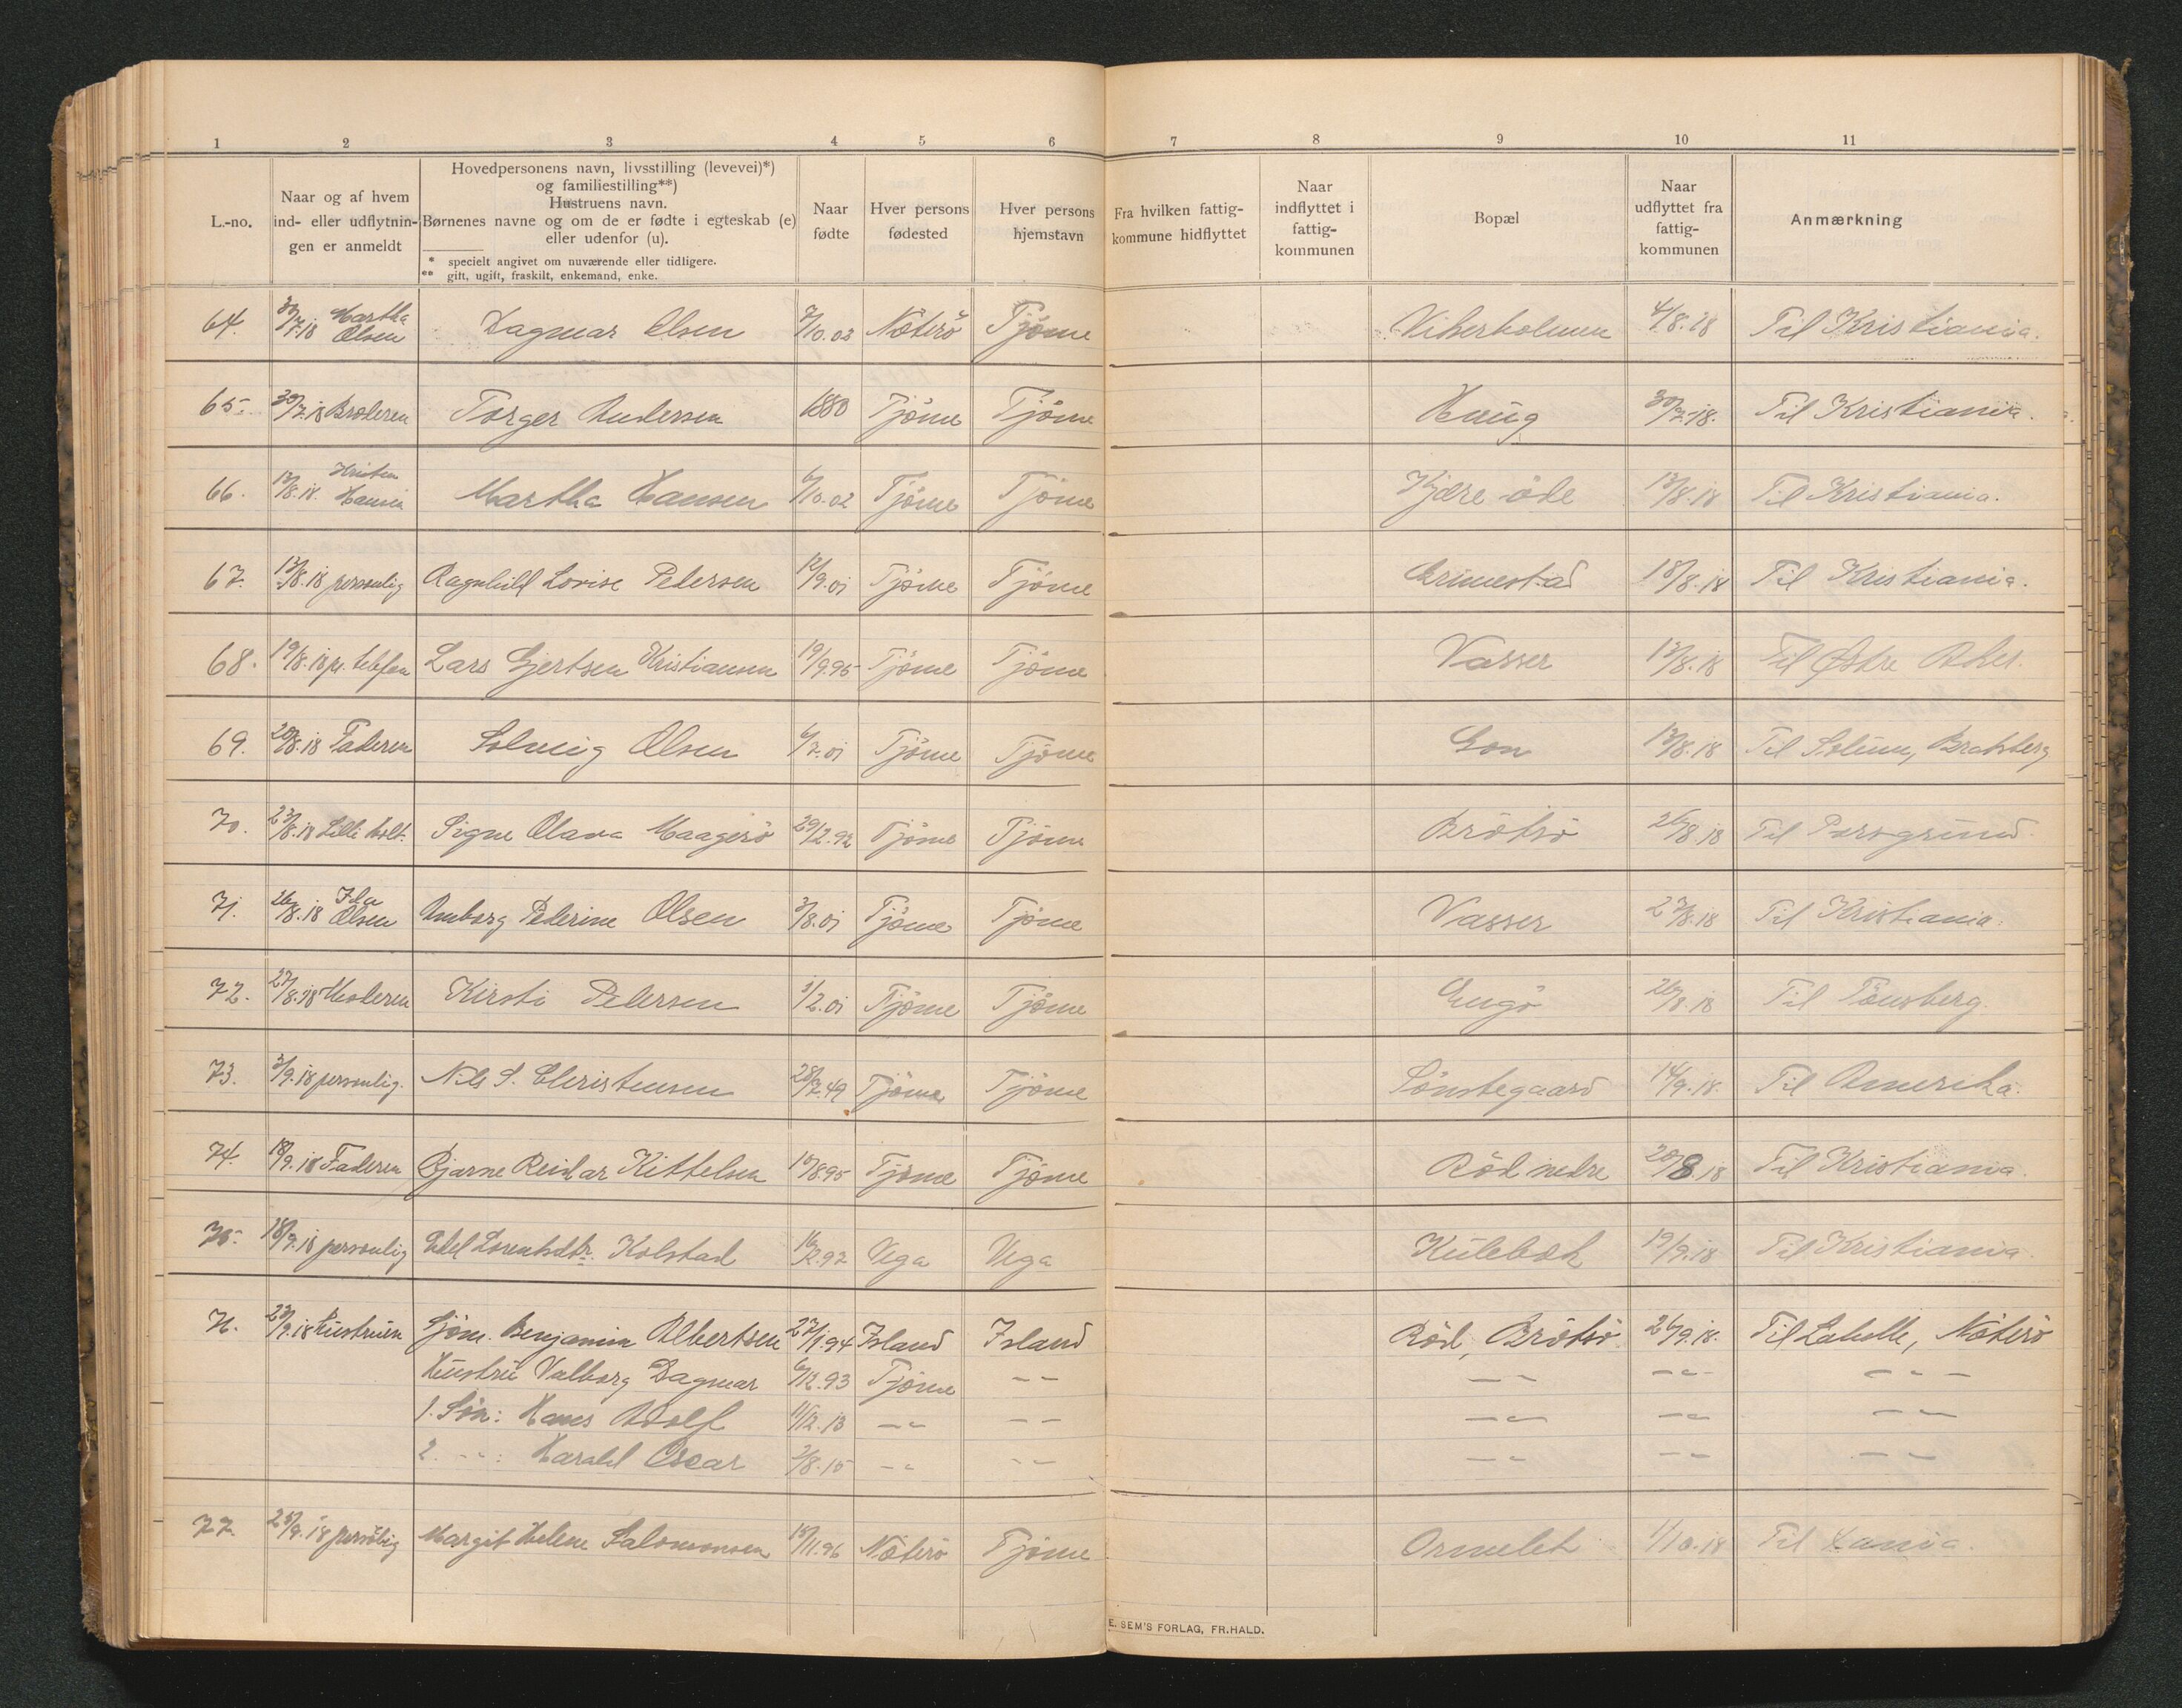 1 2 3 4 5 6 7 8 9 10 11
L.-no.
Naar og af hvem
ind- eller udflytnin-
gen er anmeldt
Hovedpersonens navn, livsstilling (levevei)*)
og familiestilling**)
Hustruens navn.
Børnenes navne og om de er fødte i egteskab (e)
eller udenfor (u).
* specielt angivet om nuværende eller tidligere.
** gift, ugift, fraskilt, enkemand, enke.
Naar
fødte
Hver persons
fødested
Hver persons
hjemstavn
Fra hvilken fattig-
kommune hidflyttet
Naar
indflyttet i
fattig-
kommunen
Bopæl
Naar
udflyttet fra
fattig-
kommunen
Anmærkning
64. 30/7.18 Martha Olsen Dagmar Olsen 7/10.03 Nøterö Tjöme 4/8.18 Til Kristiania.
65. 30/7.18 Broderen Torger Andersen 1880 Tjöme Tjöme Haug 30/7.18. Til Kristiania.
66. 12/8.18. Hansen Martha Hansen 6/10.02 Tjöme Tjöme Kjære öde 13/8.18 Til Kristiania.
67. 13/8.18 personlig Ragnhild Lovise Pedersen 12/9.01 Tjöme Tjöme Grimestad 18/8.18 Til Kristiania.
68. 19/8.18 pr. telefon Lars Gjertsen Kristiansen 19/9.95 Tjöme Tjöme Vasser 13/8.18 Til Østre Aker.
69. 20/8.18 Faderen Solveig Olsen 6/7.01 Tjöme Tjöme Gon 13/8.18 Til Solum, Bratsberg
70. 23/8.18 Lilli Holt. Signe Olava Maagerö 29/12.92 Tjöme Tjöme Brötsö 26/8.18 Til Porsgrund.
71. 26/8.18 Ida Olsen Amborg Pederine Olsen 3/8.01 Tjöme Tjöme Vasser 23/8.18 Til Kristiania.
72. 27/8.18 Moderen Kirsti Pedersen 3/2.01 Tjöme Tjöme Engö 26/8.18 Til Tönsberg.
73. 3/9.18 personlig. Nils S. Christensen 28/7.49 Tjöme Tjöme Sönstegaard 14/9.18. Til Amerika.
74. 18/9.18 Faderen Bjarne Reidar Kittelsen 10/8.95 Tjöme Tjöme Röd nedre 20/8.18 Til Kristiania.
75. 18/9.18 personlig Edel Lorentsdtr. Kolstad 16/2.92 Vega Vega Külebæk 19/9.18 Til Kristiania.
76. 23/9.18 Hustruen Sjöm. Benjamin Albertsen 27/1.94 Island Island Röd, Brötsö 26/9.18. Til Labulle, Nöterö
Hustru Valborg Dagmar 6/12.93 Tjöme — — — — — — — —
1. Sön: Hans Adolf 11/12.13 — — — — — — — — — —
2. — : Harald Oscar 2/8.15 — — — — — — — — — —
77. 25/9.18 personlig Margit Helene Salomonsen 18/11.96 Nöterö Tjöme Ormelet 1/10.18 Til Xania.
E. SEM'S FORLAG, FR.HALD.